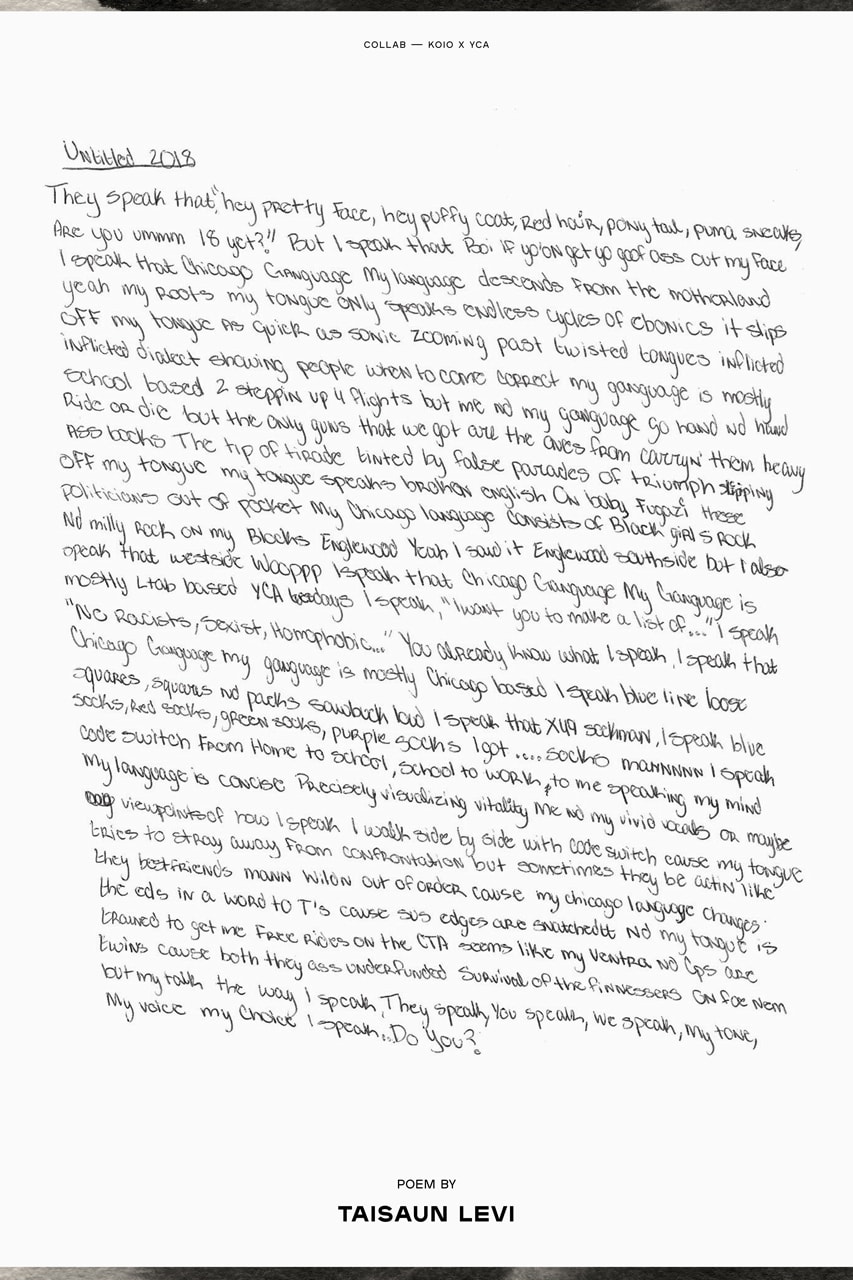 COLLAB — KOIO X YCA
Untitled 2018
They speak that, "hey pretty face, hey puffy coat, Red hair, pony tail, puma sneaks,
Are you ummm 18 yet?" But I speak that Boi if yo'on get yo goof ass out my face
I speak that Chicago Ganguage My language descends from the motherland
yeah my Roots my tongue only speaks endless cycles of ebonics it slips
OFF my tongue as quick as sonic zooming past twisted tongues inflicted
inflicted dialect showing people when to come correct my ganguage is mostly
School based 2 steppin up 4 flights but me nd my ganguage go hand nd hand
Ride or die but the only guns that we got are the ones from carryn' them heavy
Ass books The tip of tirade tinted by false parades of triumph slipping
OFF my tongue my tongue speaks broken english On baby Fugazi these
politicians out of pocket My Chicago language consists of Black girls Rock
Nd milly Rock on my Blocks Englewood Yeah I saw it Englewood southside but I also
speak that westside Wooppp I speak that Chicago Ganguage My Ganguage is
mostly Ltab based YCA days I speak, "I want you to make a list of..." I speak
"No Racists, Sexist, Homophobic..." You already know what I speak, I speak that
Chicago Ganguage my ganguage is mostly Chicago based I speak blue line loose
squares, squares nd packs sawbuck loud I speak that X49 sockman, I speak blue
socks, Red socks, green socks, purple socks I got .... socks mannnnn I speak
code switch From Home to school, school to work, to me speaking my mind
My language is concise Precisely visualizing vitality me nd my vivid vocals or maybe
viewpoints of how I speak I walk side by side with code switch cause my tongue
tries to stray away from confrontation but sometimes they be actin' like
they bestfriends mann wildn out of order cause my chicago language changes
the eds in a word to T's cause sus edges are snatchedtt Nd my tongue is
trained to get me Free Rides on the CTA seems like my Ventra nd Cps are
twins cause both they ass underfunded Survival of the finnessers On foe nem
but my talk the way I speak, They speak, You speak, we speak, My tone,
My voice my choice I speak...Do You?
POEM BY
TAISAUN LEVI